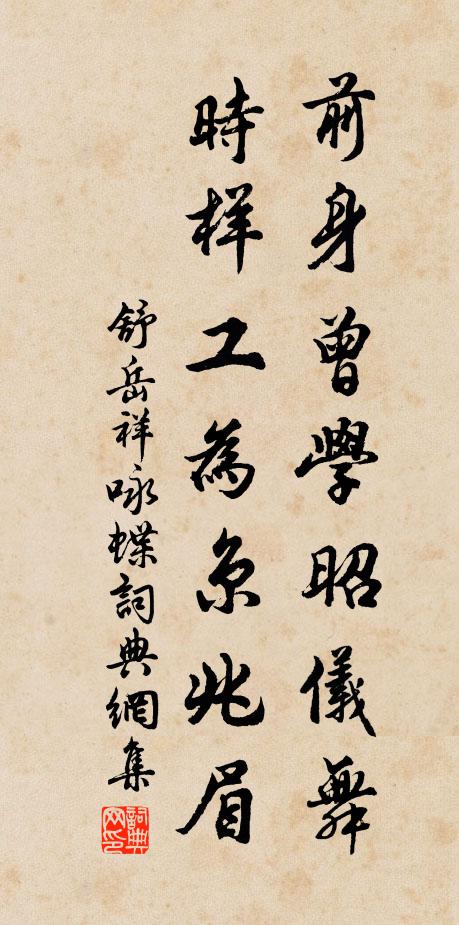 前身曾學昭儀舞
時样工為京兆眉
舒岳祥咏蝶詞典網集
詞典网印